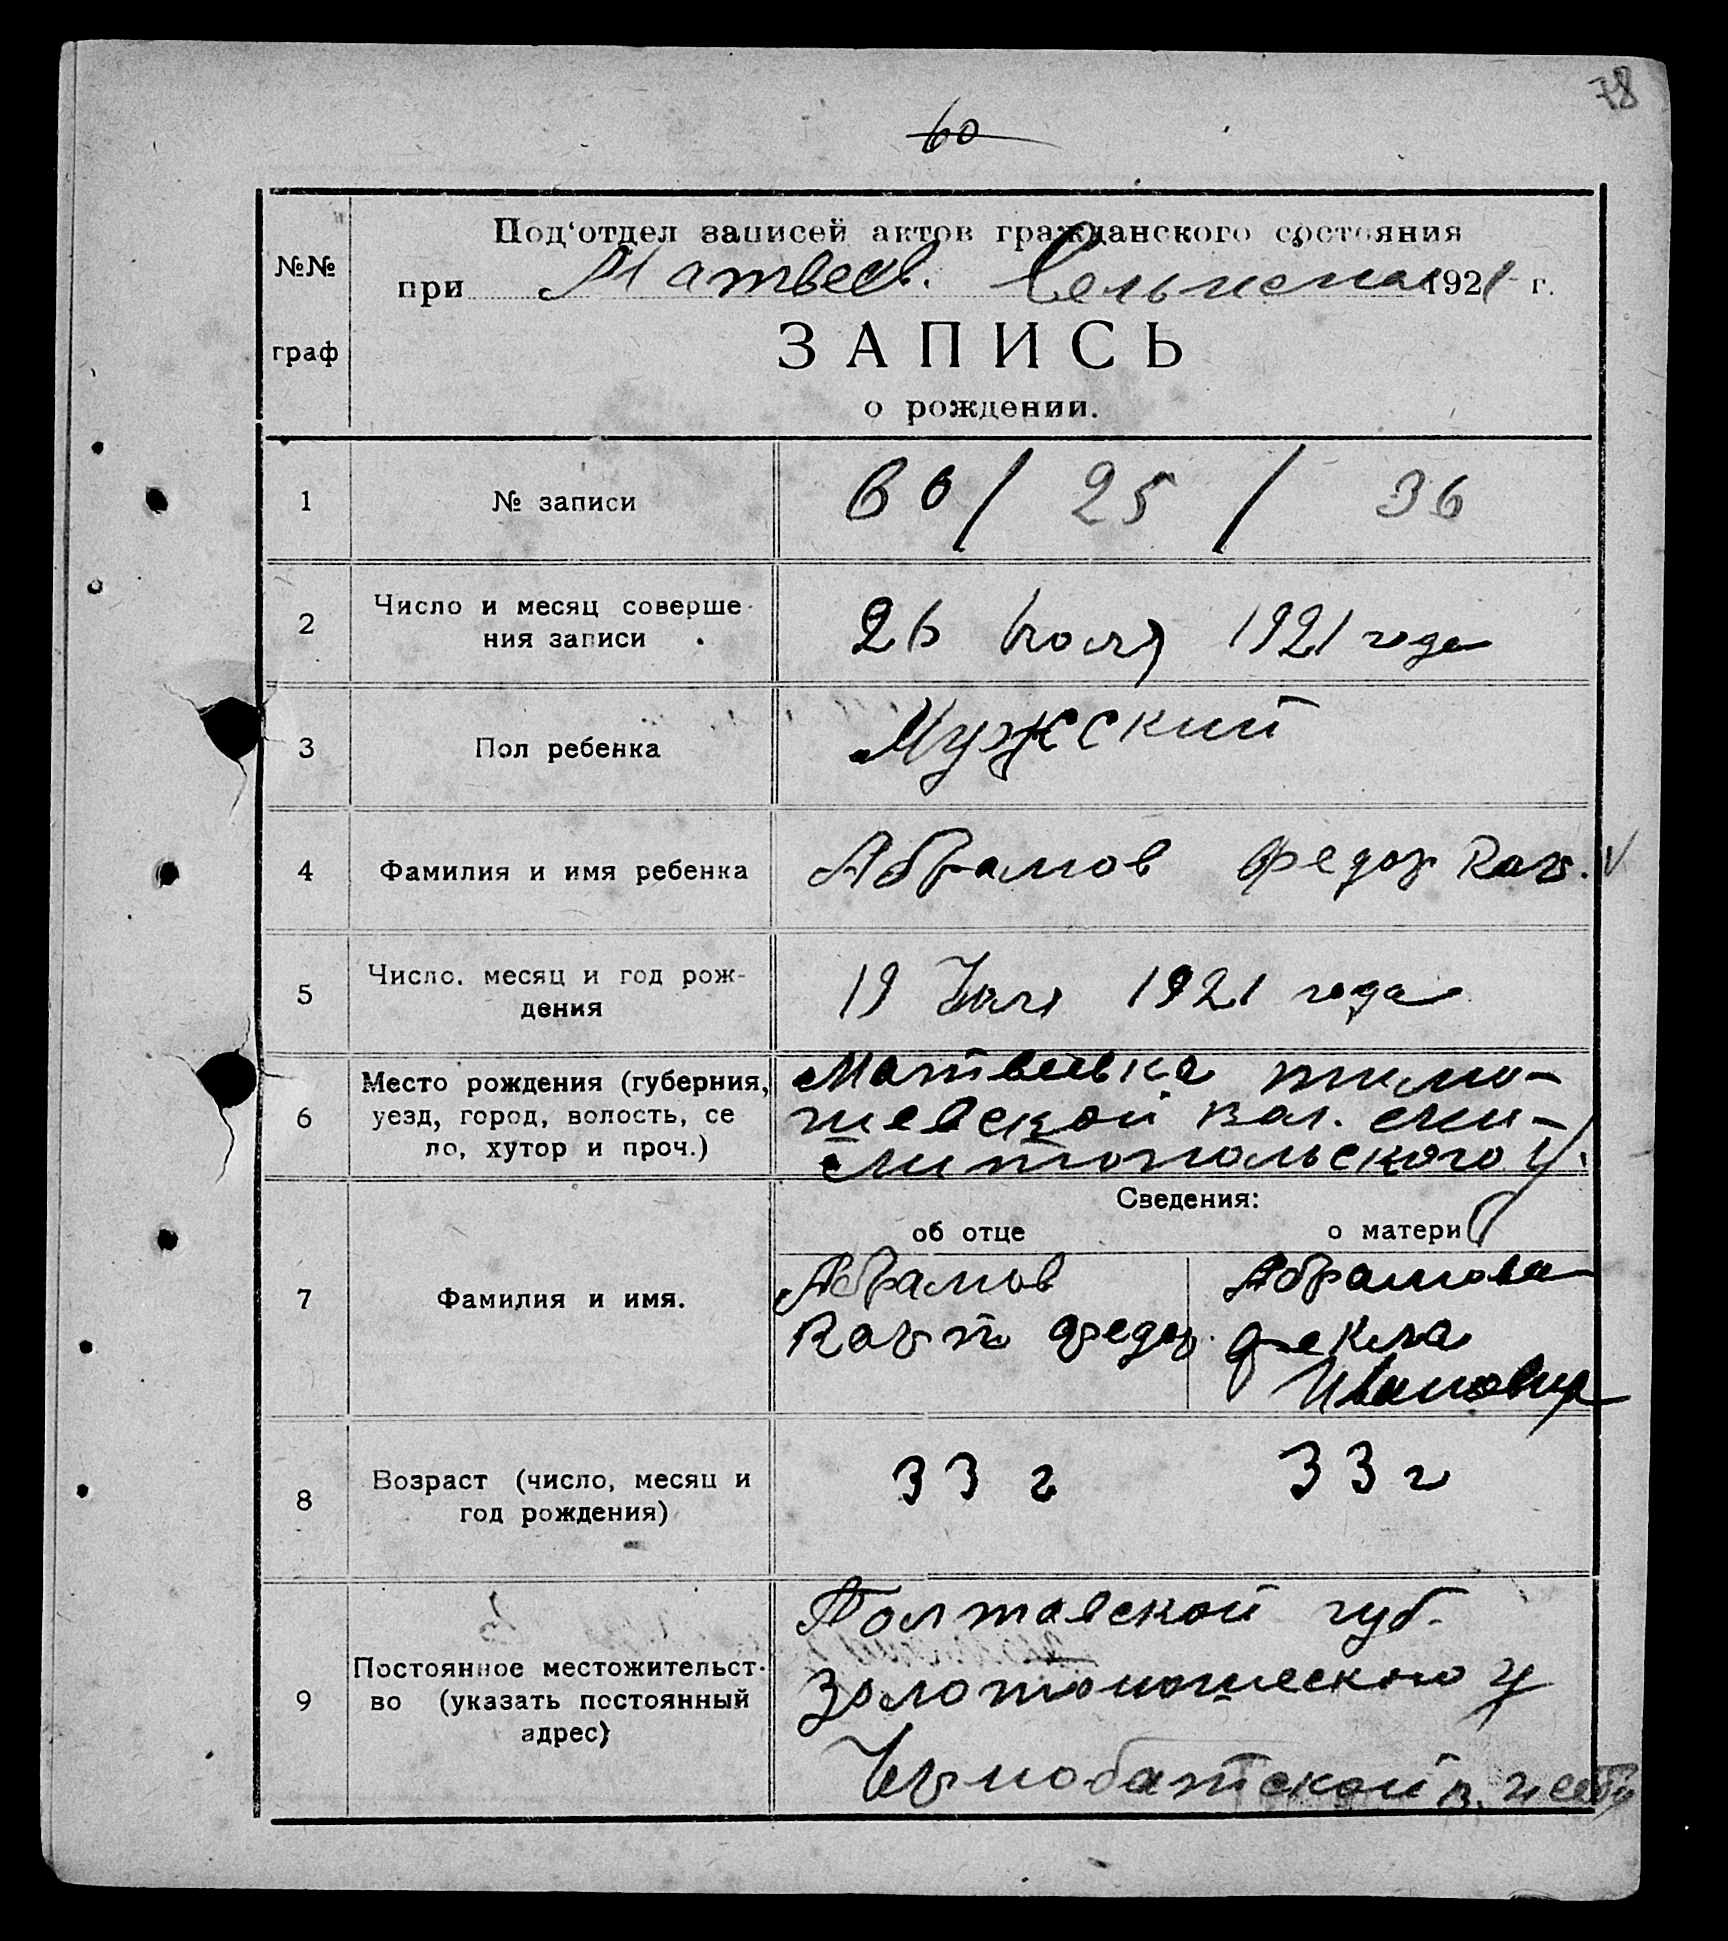 78
60
Под‘отдел записей актов гражданского состояния
№№
при Матвеев. Сельиспол 1921 г.
граф
ЗАПИСЬ
о рождении.
1 № записи 60 / 25 / 36
2 Число и месяц соверше-
ния записи 26 Июля 1921 года
3 Пол ребенка Мужский
4 Фамилия и имя ребенка Абрамов Федор Кар. V
5 Число, месяц и год рож-
дения 19 Июля 1921 года
6 Место рождения (губерния,
уезд, город, волость, се
ло, хутор и проч.)
Матвеивка тимо-
шевской вол. ми-
литопольского у.
Сведения:
об отце о матери
7 Фамилия и имя.
Абрамов
Карп Федор.
Абрамова
Фекла
Ивановна
8 Возраст (число, месяц и
год рождения)
33 г 33 г
9 Постоянное местожительст-
во (указать постоянный
адрес)
Полтавской губ.
Золотоношеского у
Чернобатской в.